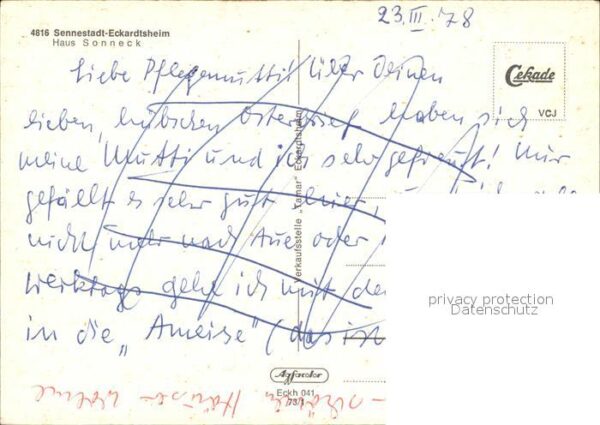 23. III. 78
4816 Sennestadt-Eckardtsheim
Haus Sonneck
Cekade
VCJ
Liebe Pflegemutti! Über Deinen
lieben, hübschen Osterbrief haben sich
meine Mutti und ich sehr gefreut! Mir
gefällt es sehr gut hier,
nicht mehr nach Aue oder
Werktags gehe ich mit de
in die „Ameise" (das ist
Verkaufsstelle „Tamar" Eckardtsheim
privacy protection
Datenschutz
Agfacolor
Eckh 041
73/1